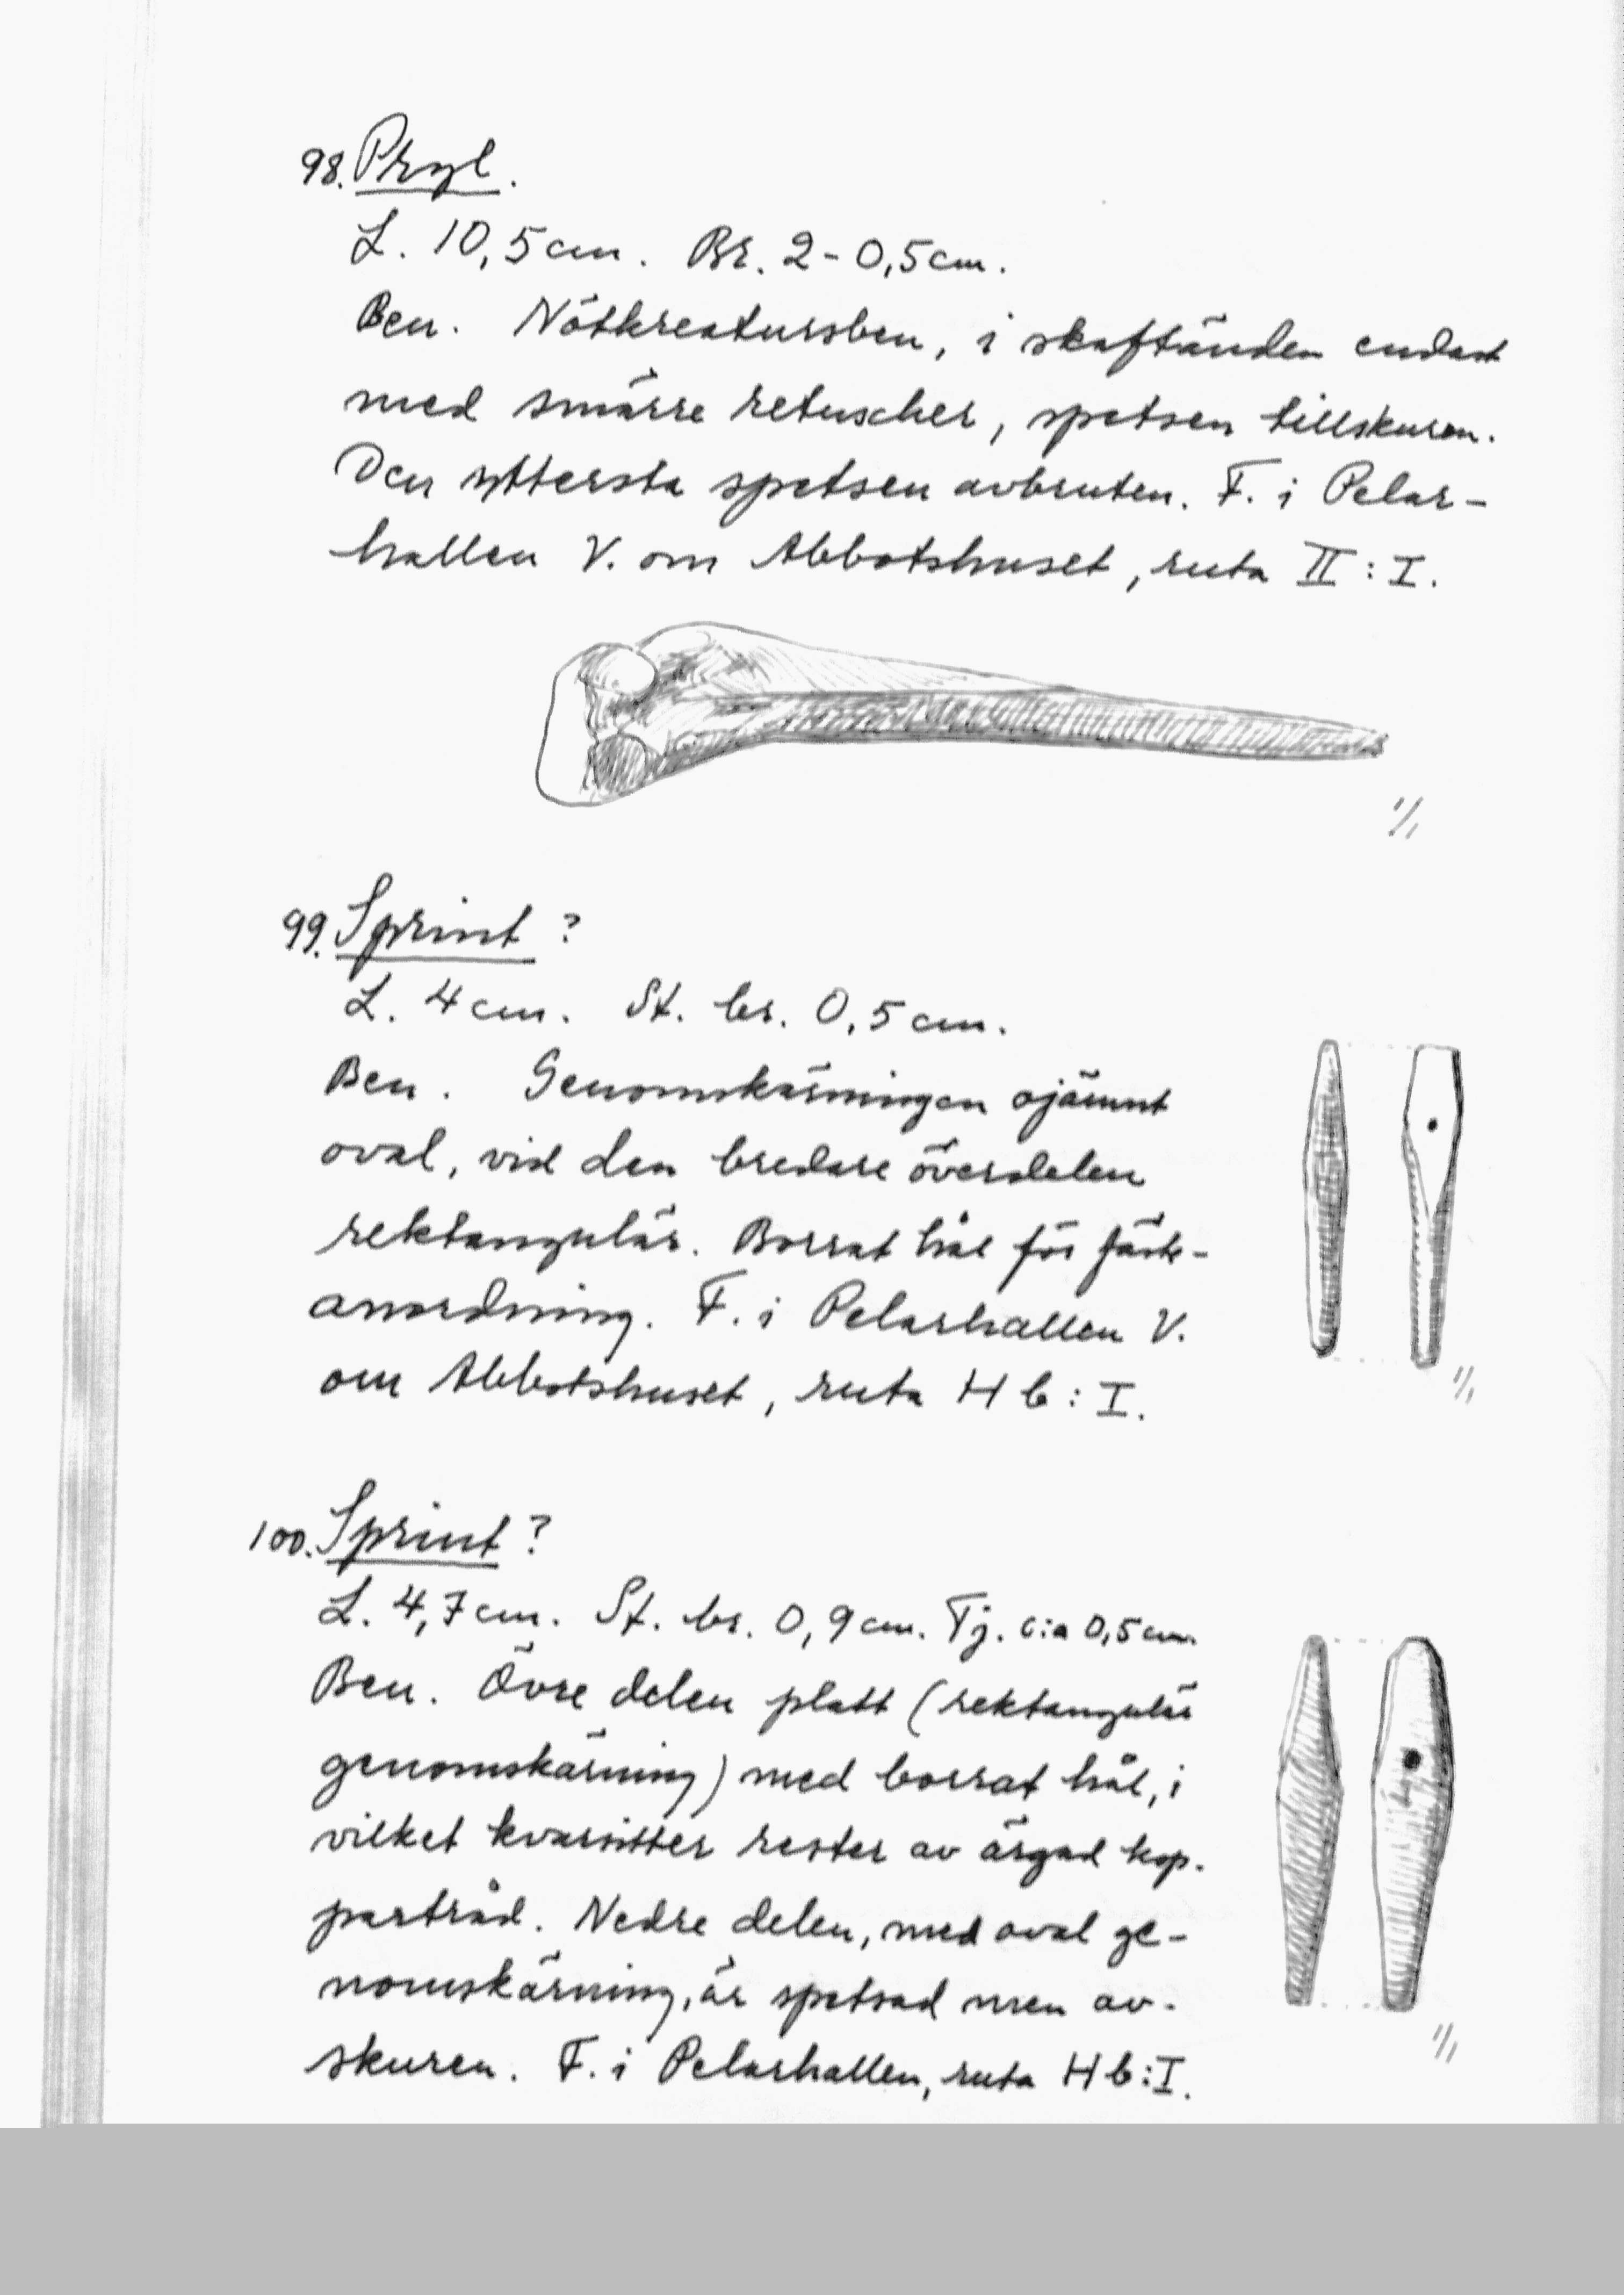 98. Pryl.
L. 10,5 cm. Br. 2-0,5 cm.
Ben. Nötkreatursben, i skaftänden endast
med smärre retuscher, spetsen tillskuren.
Den yttersta spetsen avbruten. F. i Pelar-
hallen V. om Abbotshuset, ruta II : I.
1/1
99. Sprint ?
L. 4 cm. St. br. 0,5 cm.
Ben. Genomskärningen ojämnt
oval, vid den bredare överdelen
rektangulär. Borrat hål för fäste-
anordning. F. i Pelarhallen V.
om Abbotshuset, ruta H b : I.
1/1
100. Sprint ?
L. 4,7 cm. St. br. 0,9 cm. Tj. c:a 0,5 cm.
Ben. Övre delen platt (rektangulär
genomskärning) med borrat hål, i
vilket kvarsitter rester av ärgad kop-
partråd. Nedre delen, med oval ge-
nomskärning, är spetsad men av-
skuren. F. i Pelarhallen, ruta H b : I.
1/1